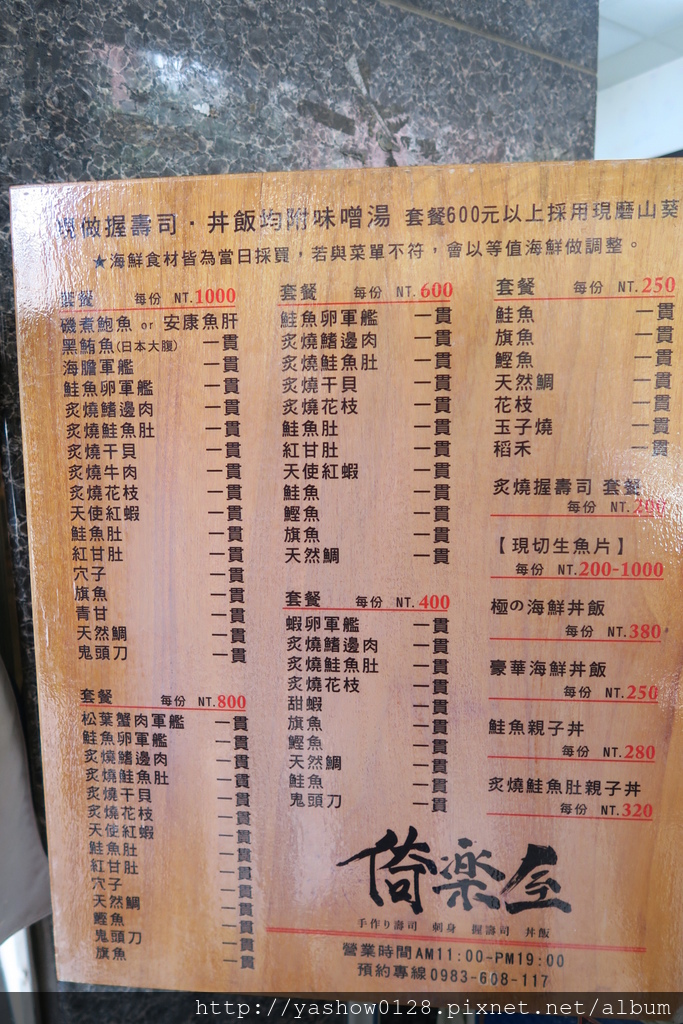 現做握壽司·丼飯均附味噌湯 套餐600元以上採用現磨山葵
★海鮮食材皆為當日採買，若與菜單不符，會以等值海鮮做調整。
套餐 每份 NT.1000
磯煮鮑魚 or 安康魚肝
黑鮪魚(日本大腹) 一貫
海膽軍艦 一貫
鮭魚卵軍艦 一貫
炙燒鰭邊肉 一貫
炙燒鮭魚肚 一貫
炙燒干貝 一貫
炙燒牛肉 一貫
炙燒花枝 一貫
天使紅蝦 一貫
鮭魚肚 一貫
紅甘肚 一貫
穴子 一貫
旗魚 一貫
青甘 一貫
天然鯛 一貫
鬼頭刀 一貫
套餐 每份 NT.800
松葉蟹肉軍艦 一貫
鮭魚卵軍艦 一貫
炙燒鰭邊肉 一貫
炙燒鮭魚肚 一貫
炙燒干貝 一貫
炙燒花枝 一貫
天使紅蝦 一貫
鮭魚肚 一貫
紅甘肚 一貫
穴子 一貫
天然鯛 一貫
鰹魚 一貫
鬼頭刀 一貫
旗魚 一貫
套餐 每份 NT.600
鮭魚卵軍艦 一貫
炙燒鰭邊肉 一貫
炙燒鮭魚肚 一貫
炙燒干貝 一貫
炙燒花枝 一貫
鮭魚肚 一貫
紅甘肚 一貫
天使紅蝦 一貫
鮭魚 一貫
鰹魚 一貫
旗魚 一貫
天然鯛 一貫
套餐 每份 NT.400
蝦卵軍艦 一貫
炙燒鰭邊肉 一貫
炙燒鮭魚肚 一貫
炙燒花枝 一貫
甜蝦 一貫
旗魚 一貫
鰹魚 一貫
天然鯛 一貫
鮭魚 一貫
鬼頭刀 一貫
套餐 每份 NT.250
鮭魚 一貫
旗魚 一貫
鰹魚 一貫
天然鯛 一貫
花枝 一貫
玉子燒 一貫
稻禾 一貫
炙燒握壽司 套餐
每份 NT.200
【現切生魚片】
每份 NT.200-1000
極の海鮮丼飯
每份 NT.380
豪華海鮮丼飯
每份 NT.250
鮭魚親子丼
每份 NT.280
炙燒鮭魚肚親子丼
每份 NT.320
倚楽屋
手作り壽司 刺身 握壽司 丼飯
營業時間AM11:00-PM19:00
預約專線0983-608-117
http://yashow0128.pixnet.net/album